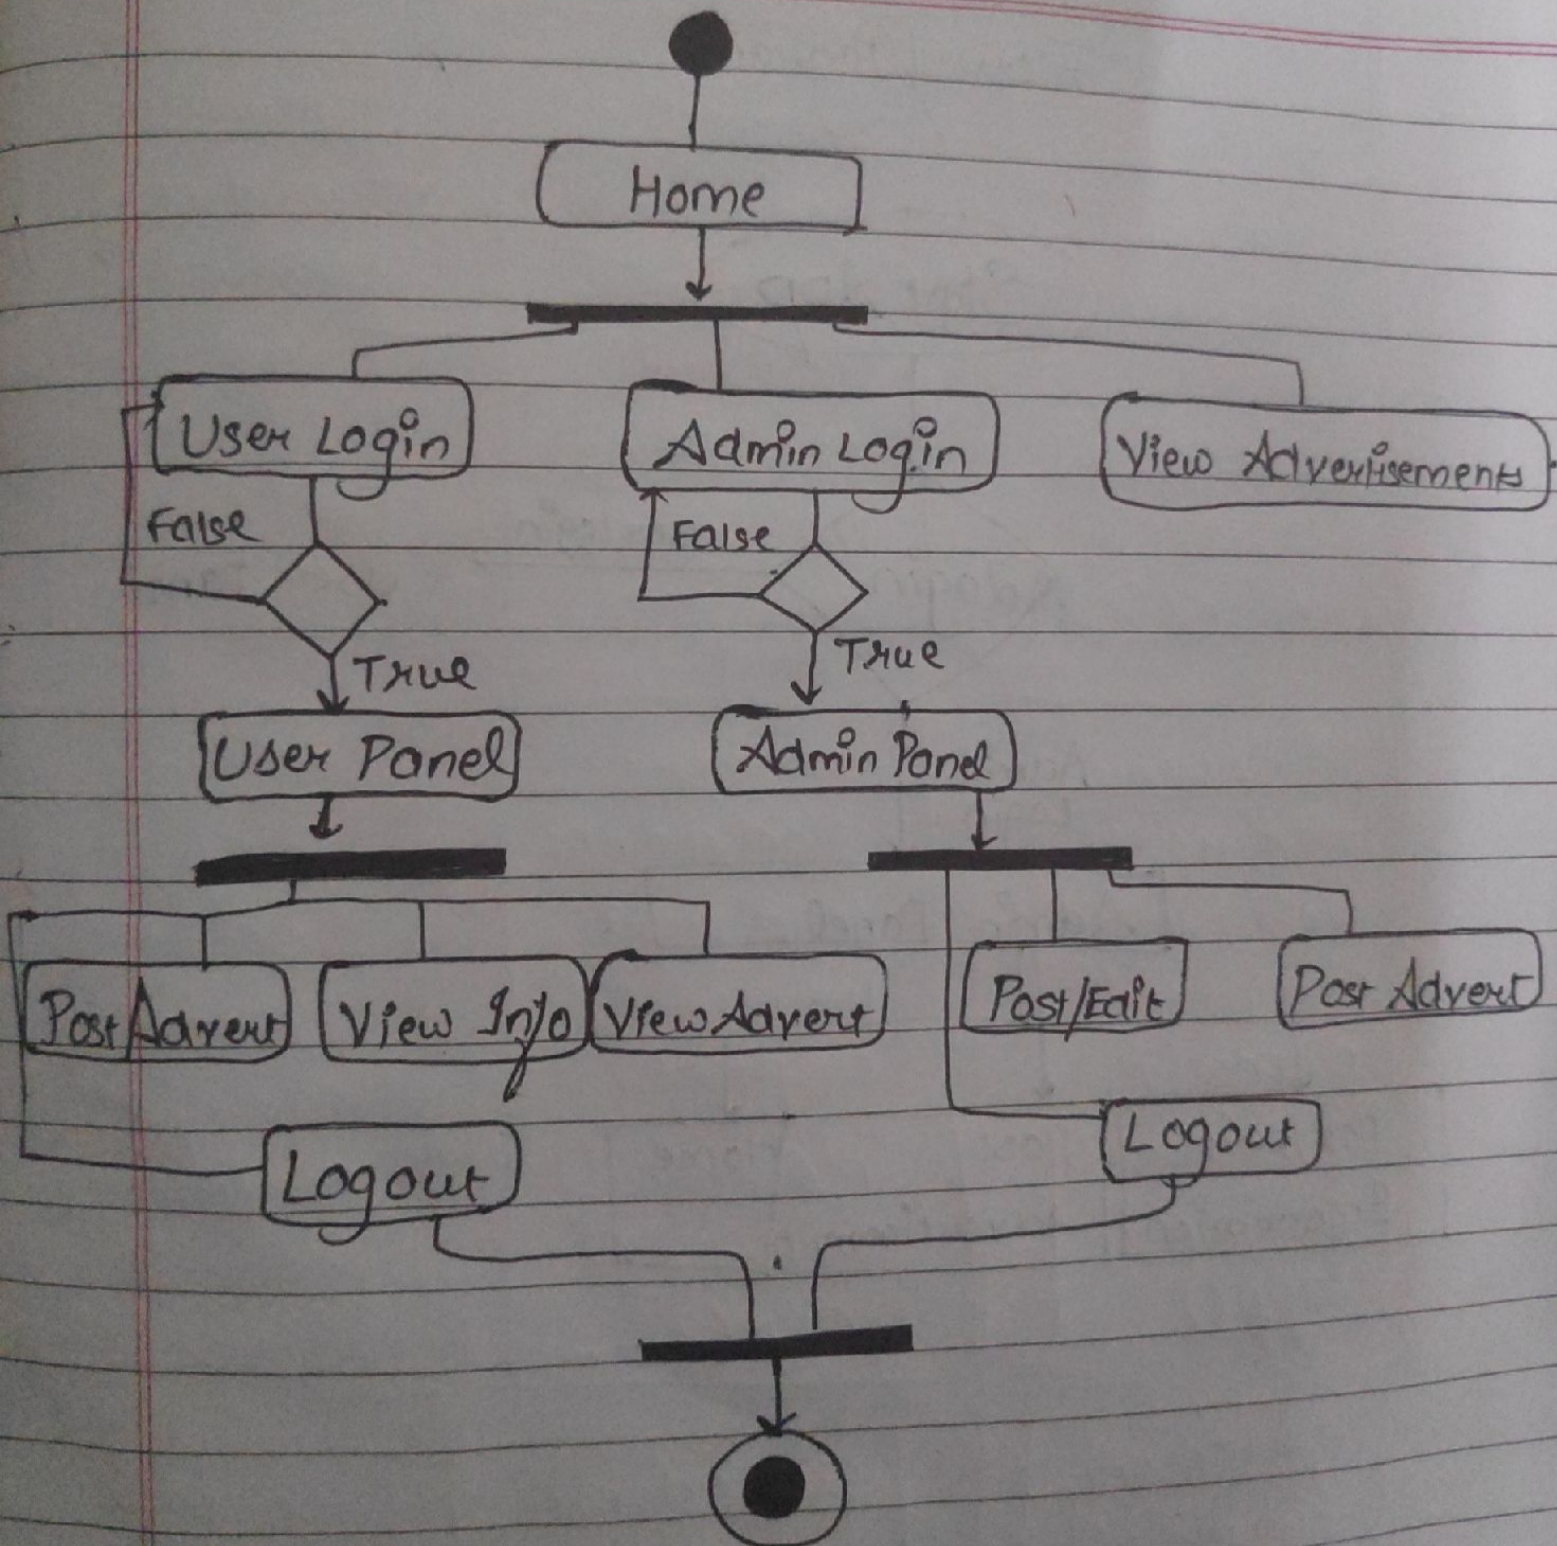 Home
User Login
Admin Login
View Advertisements
False
False
True
True
User Panel
Admin Panel
Post Advert
View Info
View Advert
Post/Edit
Post Advert
Logout
Logout